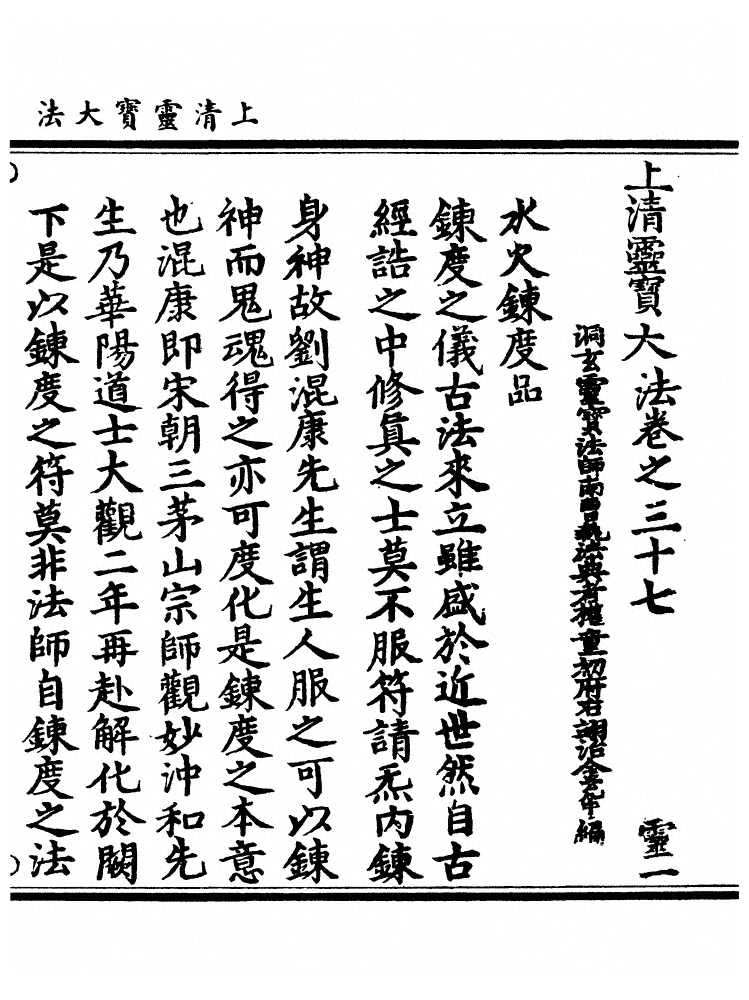 上清靈寶大法
上清靈寶大法卷之三十七 靈一
洞玄靈寶法師南曹執法典者權童初府右翊治金允中編
水火鍊度品
鍊度之儀古法來立雖盛於近世然自古
經誥之中修眞之士莫不服符請炁內鍊
身神故劉混康先生謂生人服之可以鍊
神而鬼魂得之亦可度化是鍊度之本意
也混康即宋朝三茅山宗師觀妙沖和先
生乃華陽道士大觀二年再赴解化於闕
下是以鍊度之符莫非法師自鍊度之法